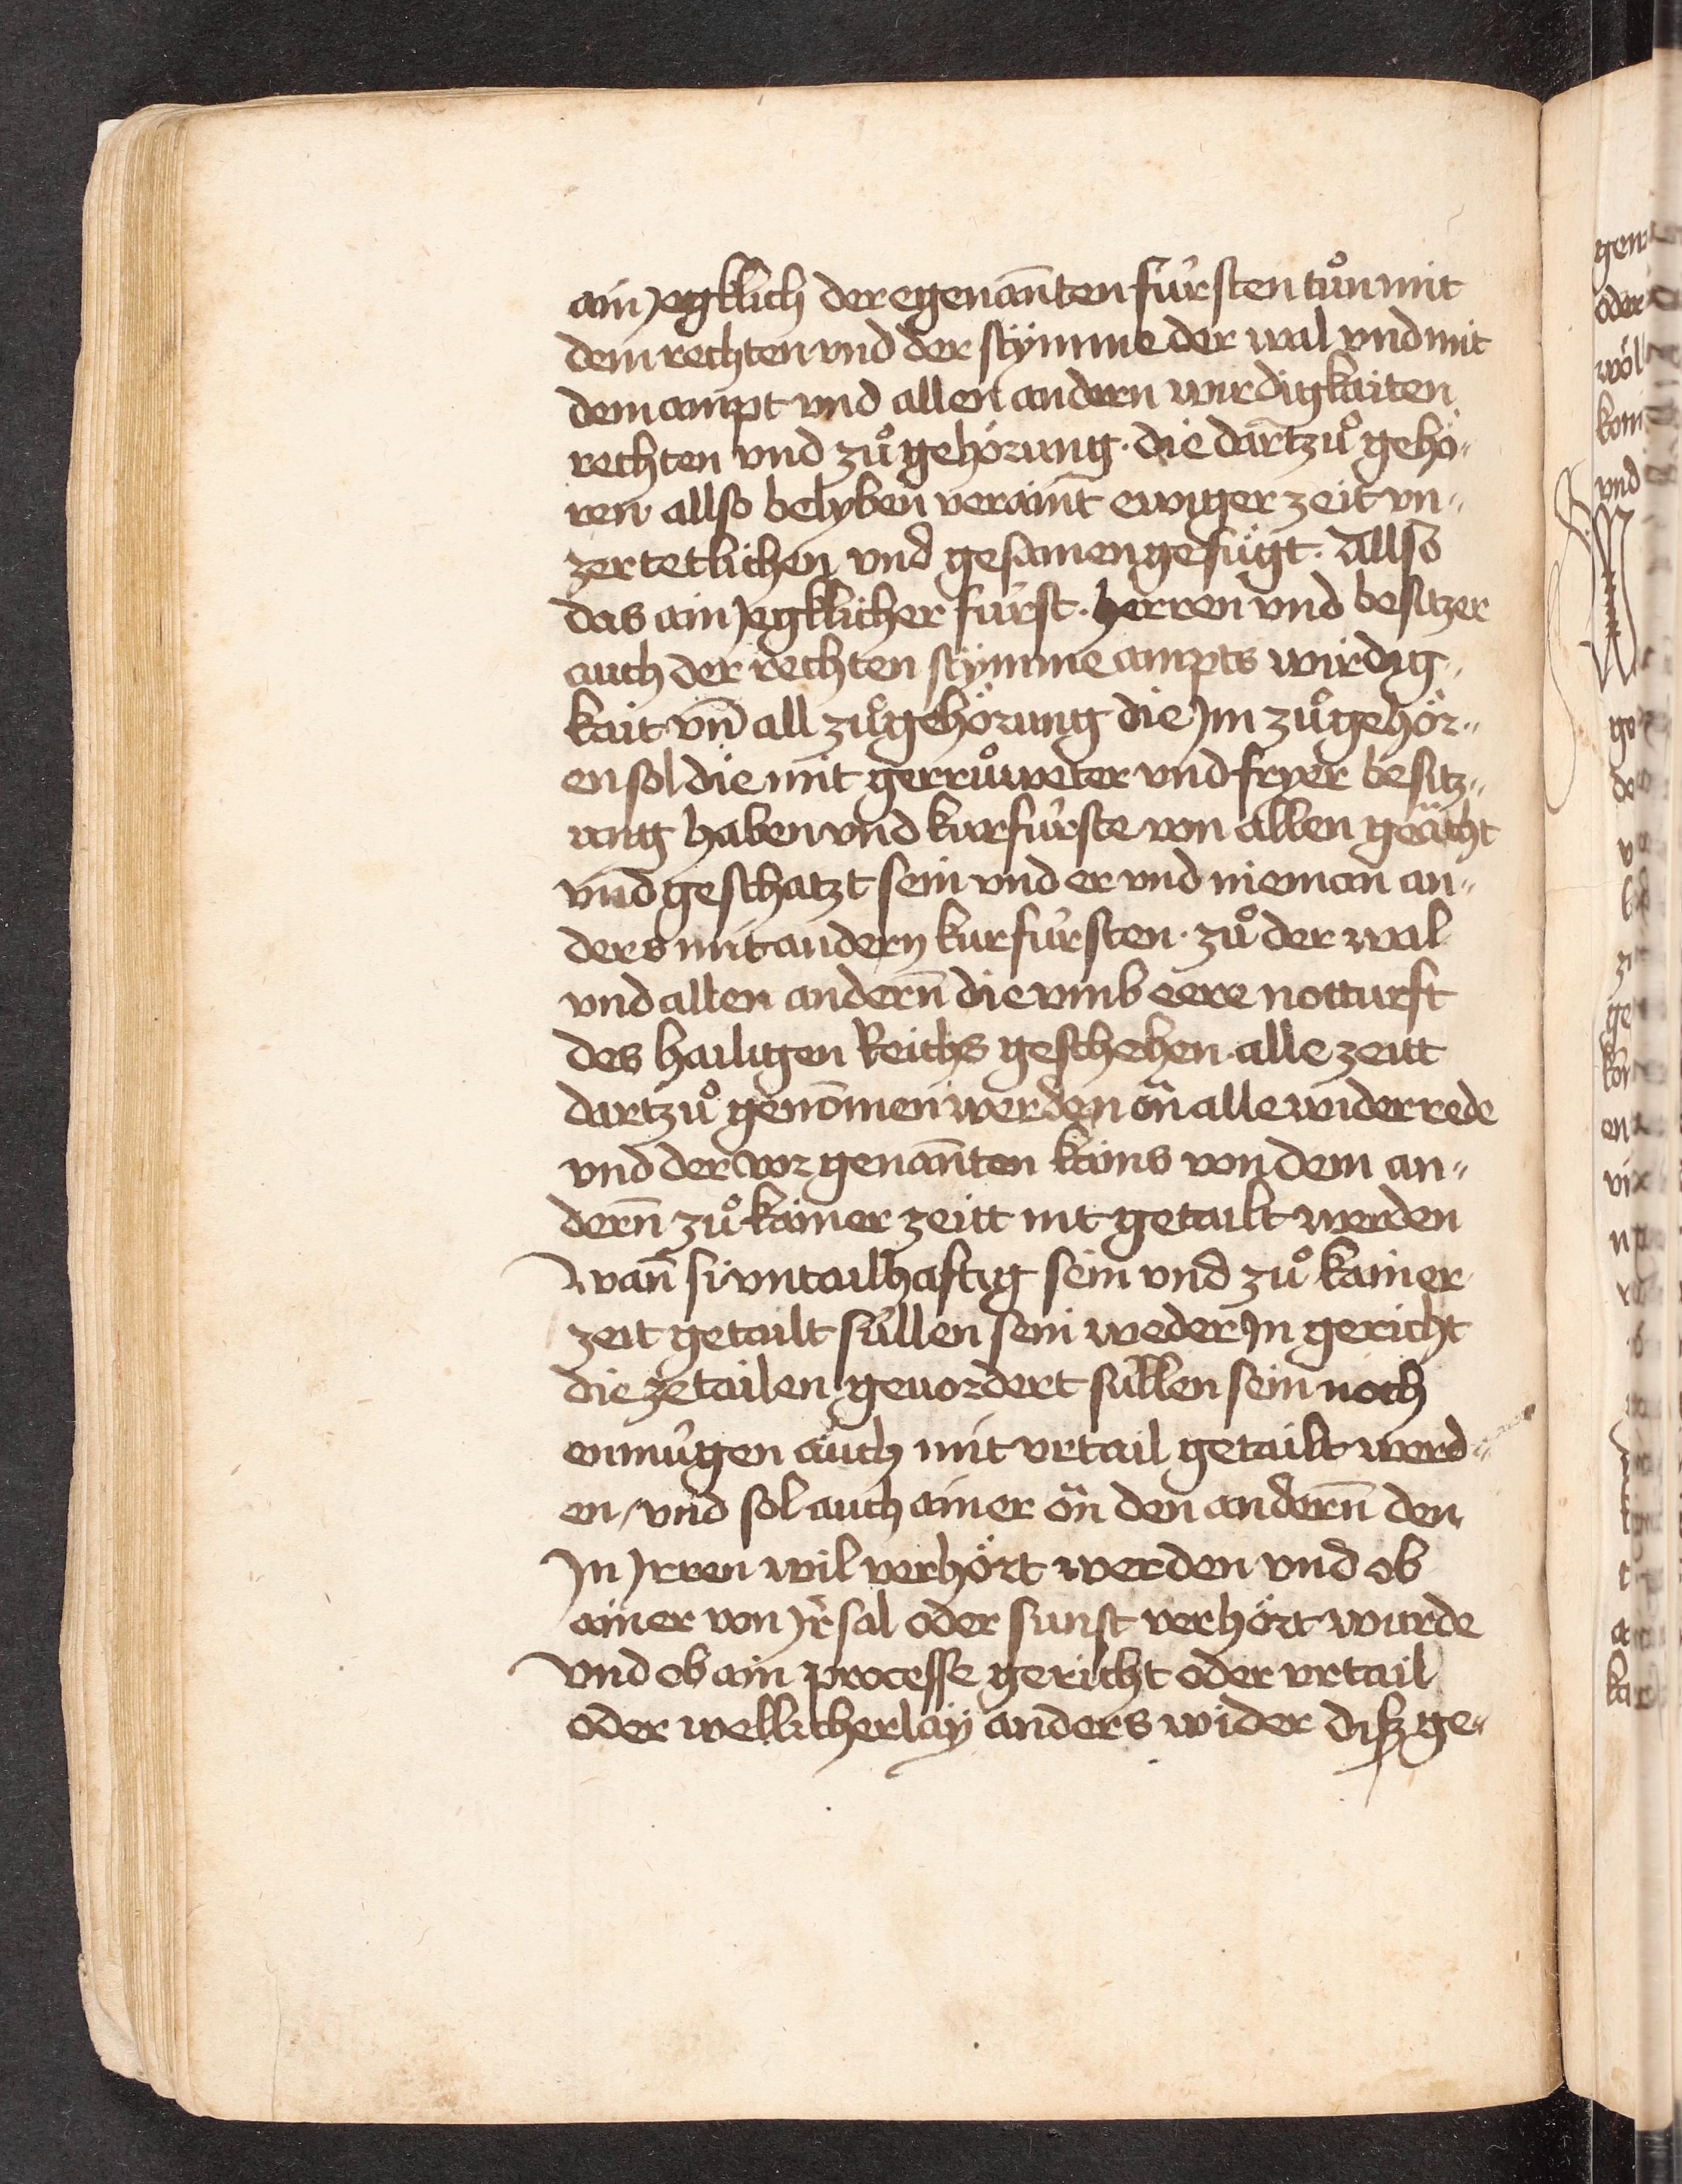 ain Jegklich der egenan̄ten fürsten tůn mit
dem rechten vnd der stÿmme der wal vnd mit
dem ampt vnd allen andern wirdigkaiten
rechten vnd zůgehörung · die dartzů gehö„
ren allso belyben veraint ewiger zeit vn„
zertetlichen vnd gesamen gefügt · Allso
das ain Jegklicher fürst · herren vnd besitzer
auch der rechten stÿmme ampts wirdig„
kait vn̄ all zůgehörung die Jm zůgehör„
en sol die mit gerrůweter vnd fryer besitz„
ung haben vnd kurfürste von allen geächt
vnd geschatzt sein vnd er vnd nieman an„
ders mit andern kurfürsten · zů der wal
vnd allen andern̄ die vmb eere notturft
des hailigen Reichs geschehen · alle zeitt
dartzů genōmen werden ön alle widerrede
vnd der vorgenan̄ten kains von dem an„
dern̄ zů kainer zeitt nit getailt werden
wan̄ si vntailhaftig sein vnd zů kainer
zeit getailt süllen sein weder Jn gericht
die zetailen geuordert süllen sein noch
enmügen auch mit vrtail getailt werd„
en / vnd sol auch ainer ön den andern̄ den
Jn Jrren wil verhört werden vnd ob
ainer von Jrsal oder sunst verhört wurde
vnd ob ain processe gericht oder vrtail
oder wellicherlaÿ anders wider disz ge„